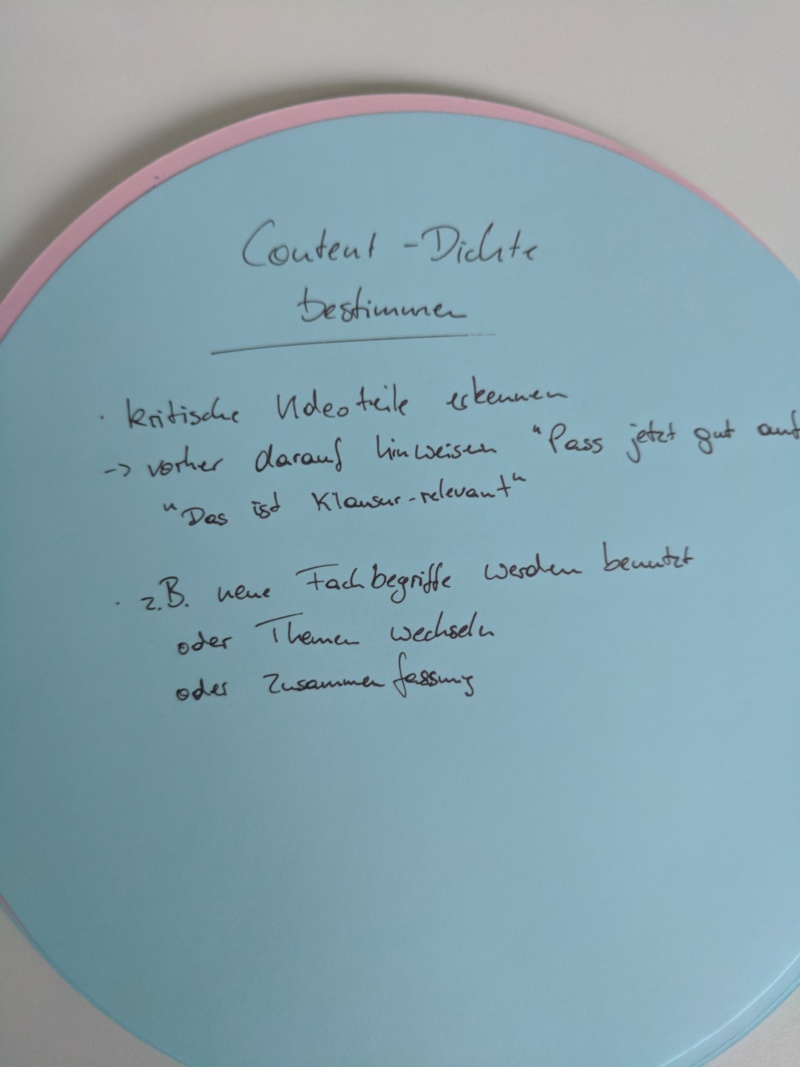 Content-Dichte
bestimmen
· kritische Videoteile erkennen
-> vorher darauf hinweisen "Pass jetzt gut auf
"Das ist Klausur-relevant"
· z.B. neue Fachbegriffe werden benutzt
oder Themen wechseln
oder Zusammenfassung